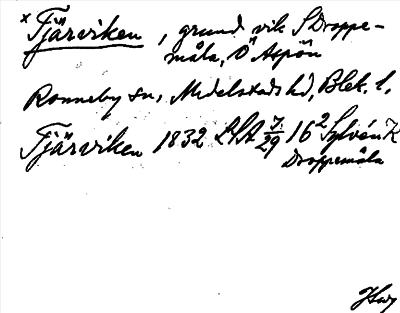 x Tjärviken, grund vik S Droppe-
måla, Ö Aspön
Ronneby sn, Medelstads hd, Blek. l.
Tjärviken 1832 LSA J. 29 16² Sylvén K
Droppemåla